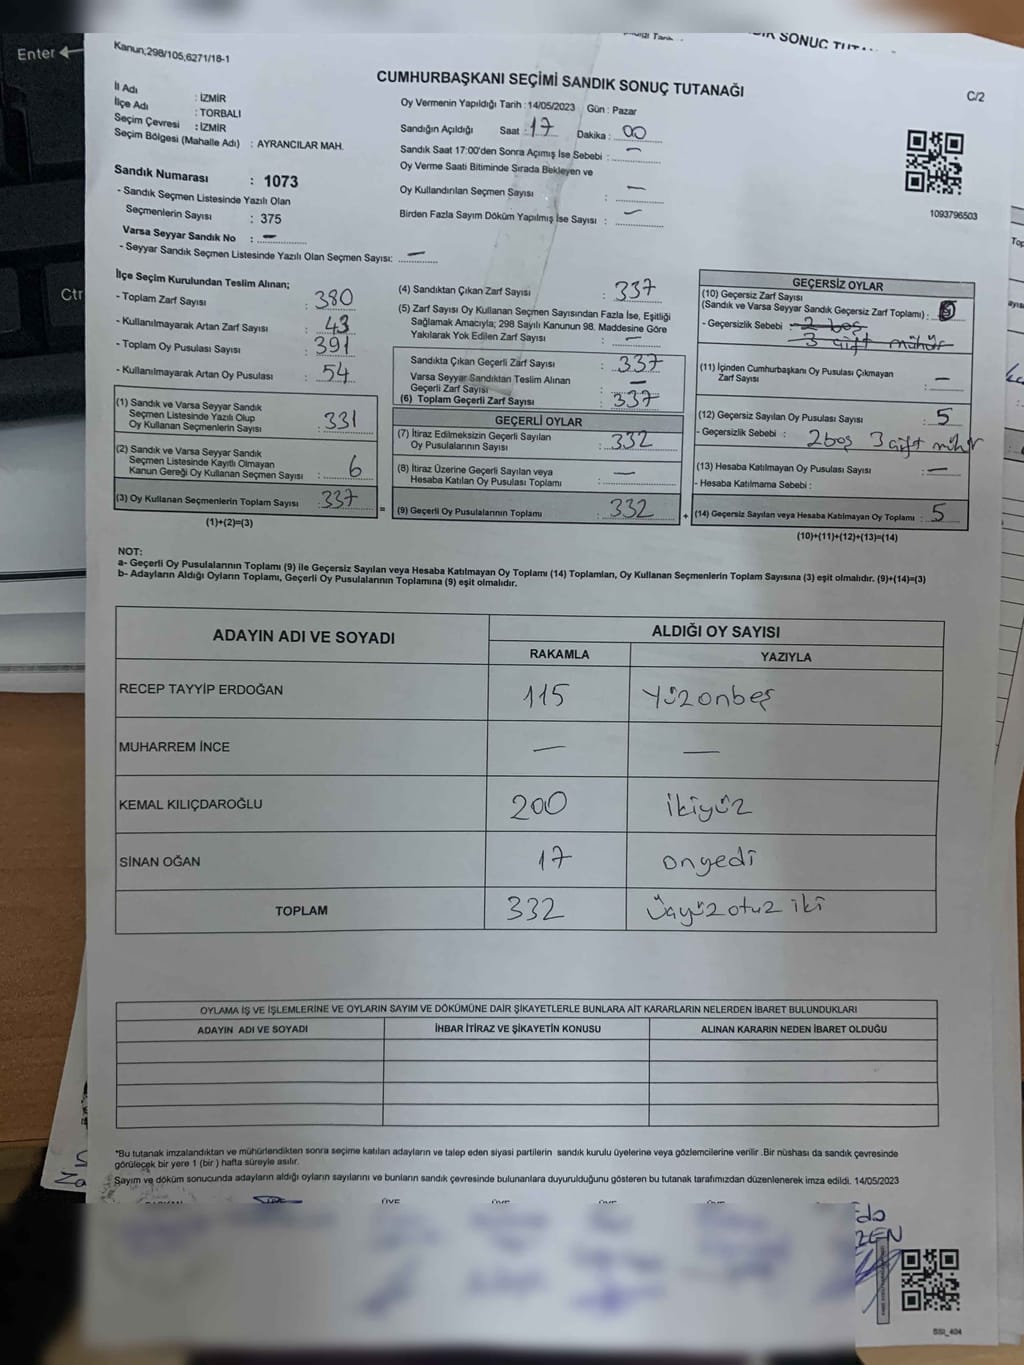 Enter
Ctr
SONUÇ TUT
Kanun;298/105,6271/18-1
CUMHURBAŞKANI SEÇİMİ SANDIK SONUÇ TUTANAĞI
C/2
İl Adı : İZMİR
İlçe Adı : TORBALI
Seçim Çevresi : İZMİR
Seçim Bölgesi (Mahalle Adı) : AYRANCILAR MAH.
Sandık Numarası : 1073
- Sandık Seçmen Listesinde Yazılı Olan
Seçmenlerin Sayısı : 375
Varsa Seyyar Sandık No : —
- Seyyar Sandık Seçmen Listesinde Yazılı Olan Seçmen Sayısı: —
Oy Vermenin Yapıldığı Tarih : 14/05/2023 Gün : Pazar
Sandığın Açıldığı Saat : 17 Dakika : 00
Sandık Saat 17:00'den Sonra Açımış İse Sebebi : —
Oy Verme Saati Bitiminde Sırada Bekleyen ve
Oy Kullandırılan Seçmen Sayısı : —
Birden Fazla Sayım Döküm Yapılmış İse Sayısı : —
1093796503
İlçe Seçim Kurulundan Teslim Alınan;
- Toplam Zarf Sayısı : 380
- Kullanılmayarak Artan Zarf Sayısı : 43
- Toplam Oy Pusulası Sayısı : 391
- Kullanılmayarak Artan Oy Pusulası : 54
(1) Sandık ve Varsa Seyyar Sandık
Seçmen Listesinde Yazılı Olup
Oy Kullanan Seçmenlerin Sayısı : 331
(2) Sandık ve Varsa Seyyar Sandık
Seçmen Listesinde Kayıtlı Olmayan
Kanun Gereği Oy Kullanan Seçmen Sayısı : 6
(3) Oy Kullanan Seçmenlerin Toplam Sayısı : 337
(1)+(2)=(3)
(4) Sandıktan Çıkan Zarf Sayısı : 337
(5) Zarf Sayısı Oy Kullanan Seçmen Sayısından Fazla İse, Eşitliği
Sağlamak Amacıyla; 298 Sayılı Kanunun 98. Maddesine Göre
Yakılarak Yok Edilen Zarf Sayısı : —
Sandıkta Çıkan Geçerli Zarf Sayısı : 337
Varsa Seyyar Sandıktan Teslim Alınan
Geçerli Zarf Sayısı : —
(6) Toplam Geçerli Zarf Sayısı : 337
GEÇERLİ OYLAR
(7) İtiraz Edilmeksizin Geçerli Sayılan
Oy Pusulalarının Sayısı : 332
(8) İtiraz Üzerine Geçerli Sayılan veya
Hesaba Katılan Oy Pusulası Toplamı : —
(9) Geçerli Oy Pusulalarının Toplamı : 332
GEÇERSİZ OYLAR
(10) Geçersiz Zarf Sayısı
(Sandık ve Varsa Seyyar Sandık Geçersiz Zarf Toplamı) :
- Geçersizlik Sebebi : 2 boş
3 çift mühür
(11) İçinden Cumhurbaşkanı Oy Pusulası Çıkmayan
Zarf Sayısı : —
(12) Geçersiz Sayılan Oy Pusulası Sayısı : 5
- Geçersizlik Sebebi : 2boş 3 çift mühür
(13) Hesaba Katılmayan Oy Pusulası Sayısı : —
- Hesaba Katılmama Sebebi :
(14) Geçersiz Sayılan veya Hesaba Katılmayan Oy Toplamı : 5
(10)+(11)+(12)+(13)=(14)
NOT:
a- Geçerli Oy Pusulalarının Toplamı (9) ile Geçersiz Sayılan veya Hesaba Katılmayan Oy Toplamı (14) Toplamları, Oy Kullanan Seçmenlerin Toplam Sayısına (3) eşit olmalıdır. (9)+(14)=(3)
b- Adayların Aldığı Oyların Toplamı, Geçerli Oy Pusulalarının Toplamına (9) eşit olmalıdır.
ADAYIN ADI VE SOYADI ALDIĞI OY SAYISI
RAKAMLA YAZIYLA
RECEP TAYYİP ERDOĞAN 115 yüzonbeş
MUHARREM İNCE — —
KEMAL KILIÇDAROĞLU 200 ikiyüz
SİNAN OĞAN 17 onyedi
TOPLAM 332 üçyüzotuz iki
OYLAMA İŞ VE İŞLEMLERİNE VE OYLARIN SAYIM VE DÖKÜMÜNE DAİR ŞİKAYETLERLE BUNLARA AİT KARARLARIN NELERDEN İBARET BULUNDUKLARI
ADAYIN ADI VE SOYADI İHBAR İTİRAZ VE ŞİKAYETİN KONUSU ALINAN KARARIN NEDEN İBARET OLDUĞU
*Bu tutanak imzalandıktan ve mühürlendikten sonra seçime katılan adayların ve talep eden siyasi partilerin sandık kurulu üyelerine veya gözlemcilerine verilir .Bir nüshası da sandık çevresinde
görülecek bir yere 1 (bir ) hafta süreyle asılır.
Sayım ve döküm sonucunda adayların aldığı oyların sayılarını ve bunların sandık çevresinde bulunanlara duyurulduğunu gösteren bu tutanak tarafımızdan düzenlenerek imza edildi. 14/05/2023
SSI_404